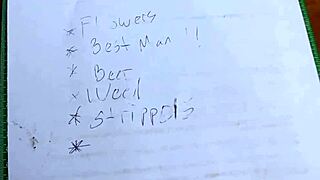 * Flowers
* Best Man!!
* Beer
x Weed
* Strippers
*